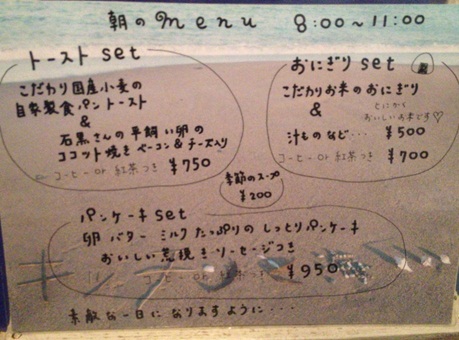 朝のmenu 8:00～11:00
トースト set
こだわり国産小麦の
自家製食パントースト
&
石黒さんの平飼い卵の
ココット焼き ベーコン&チーズ入り
コーヒー or 紅茶つき ¥750
おにぎり set
こだわりお米のおにぎり
&
とにかく
おいしいお米です♡
汁ものなど... ¥500
コーヒー or 紅茶つき ¥700
季節のスープ
¥200
パンケーキ set
卵 バター ミルク たっぷりの しっとりパンケーキ
おいしい荒挽きソーセージつき
コーヒー or 紅茶つき ¥950
素敵な一日になりますように...